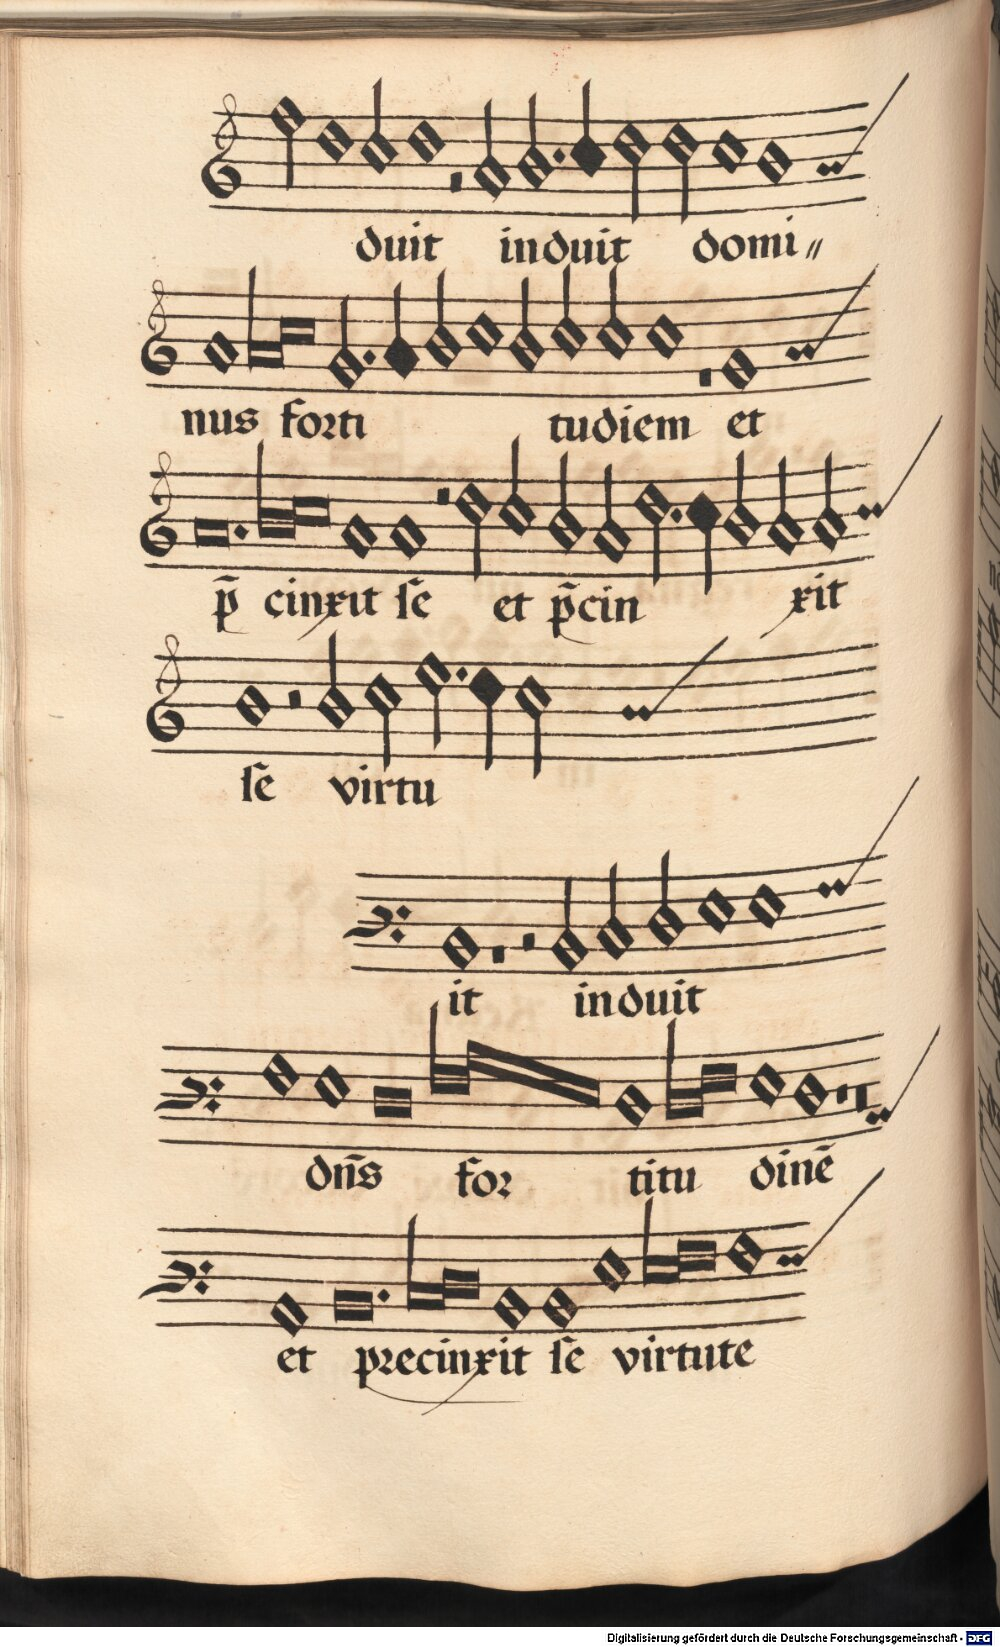 duit induit domi〃
nus forti tudiem et
p̄ cinxit se et p̄cin xit
se virtu
it induit
dn̄s for titu dinē
et precinxit se virtute
Digitalisierung gefördert durch die Deutsche Forschungsgemeinschaft - DFG